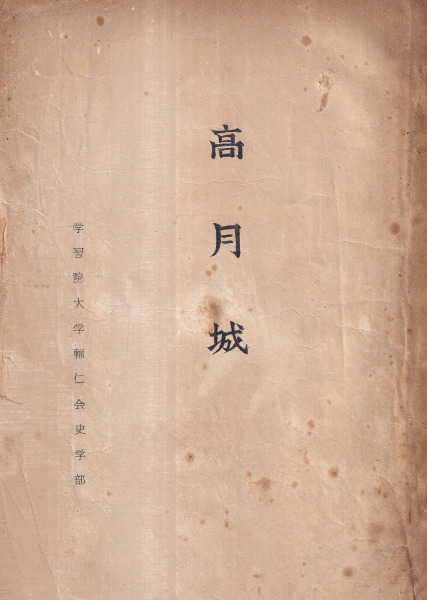 高月城
学習院大学輔仁会史学部